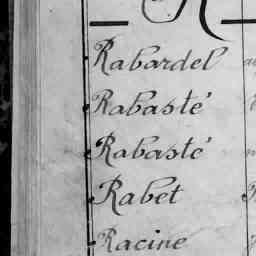 R
Rabardel
Rabasté
Rabasté
Rabet
Racine